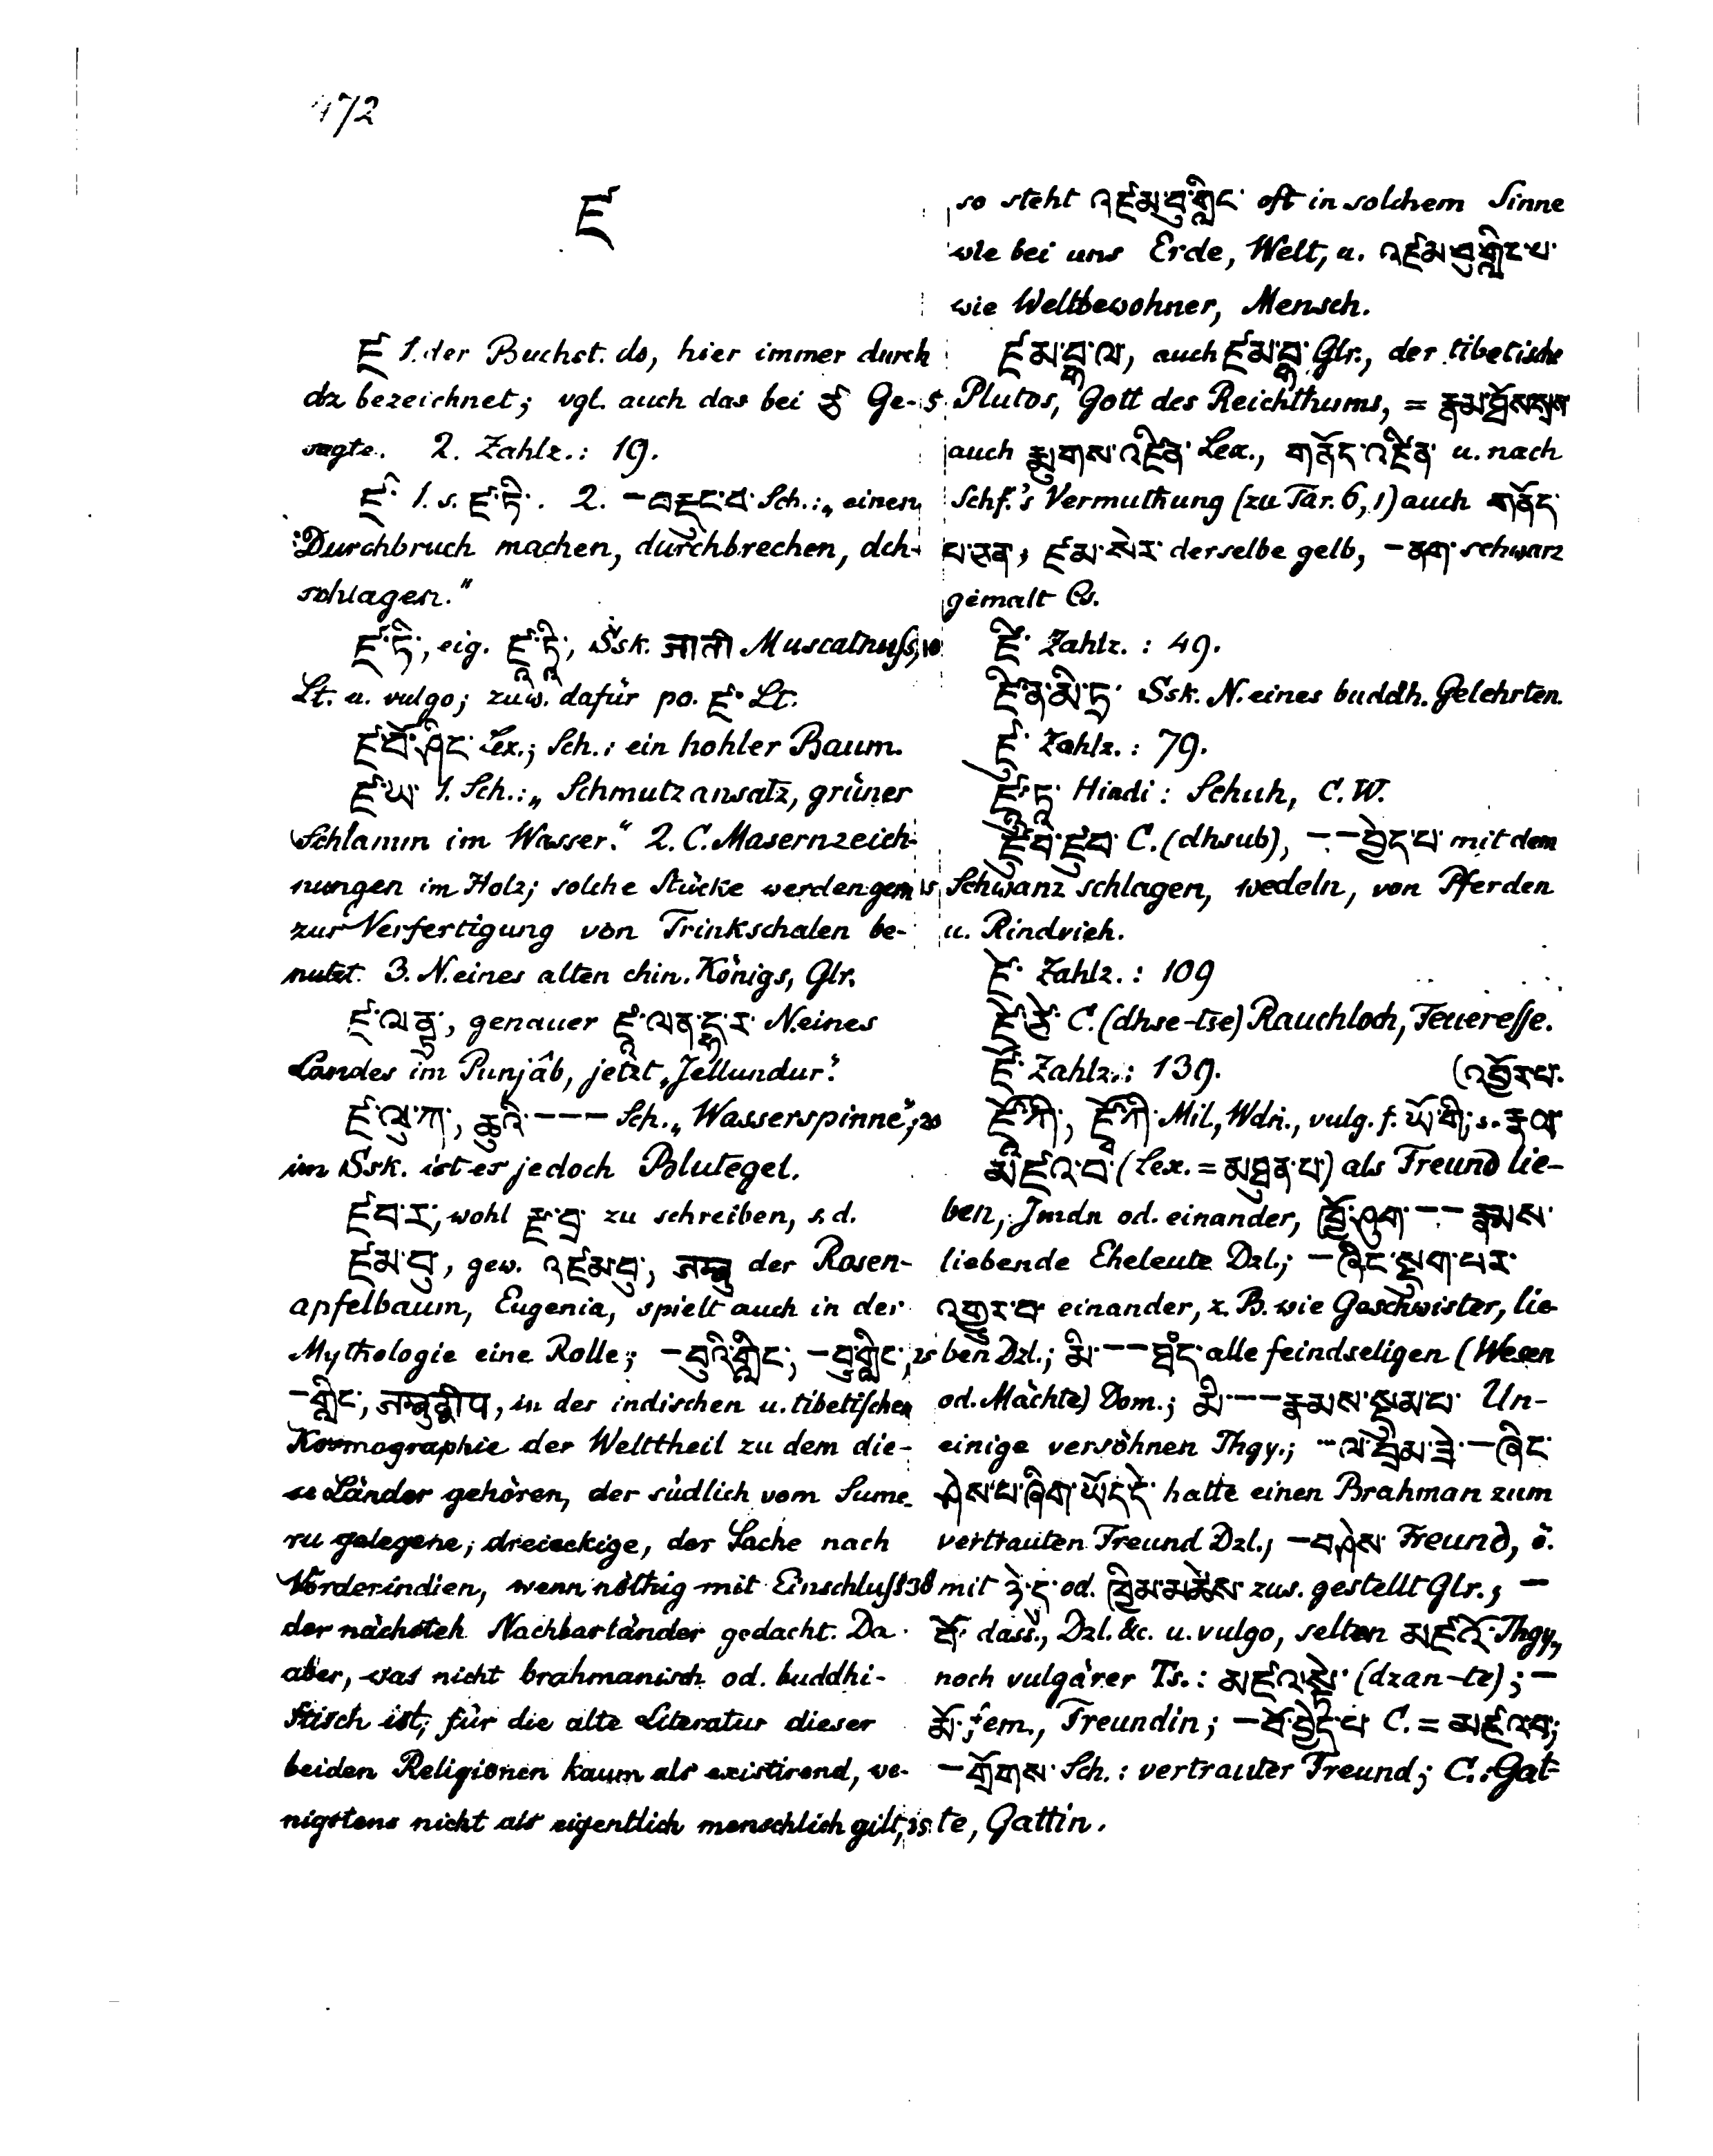 472
ཛ
ཛ 1. der Buchst. ds, hier immer durch
dz bezeichnet; vgl. auch das bei ཙ Ge-
sagte. 2. Zahlz.: 19.
ཛ་ 1. s. ཛ་ཏི་. 2. –བརྡུང་བ་ Sch.: „einen
Durchbruch machen, durchbrechen, dch-
schlagen."
ཛ་ཏི་, eig. ཛཱ་ཏཱི་, Ssk. जाती Muscatnuſs,
Lt. u. vulgo; zuw. dafür po. ཛ་ Lt.
ཛ་བོ་ཤིང་ Lex.; Sch.: ein hohler Baum.
ཛ་ཡ་ 1. Sch.: „Schmutzansatz, grüner
Schlamm im Wasser." 2. C. Masernzeich-
nungen im Holz; solche Stücke werden gern
zur Verfertigung von Trinkschalen be-
nutzt. 3. N. eines alten chin. Königs, Glr.
ཛ་ལནྡྷ་, genauer ཛཱ་ལན་དྷ་ར་ N. eines
Landes im Punjâb, jetzt „Jellundur".
ཛ་ལུ་ཀ, ཆུའི་ ––– Sch. „Wasserspinne";
im Ssk. ist es jedoch Blutegel.
ཛ་བ་ར་, wohl zu schreiben, s. d.
ཛམ་བུ་, gew. འཛམ་བུ་, जम्बु der Rosen-
apfelbaum, Eugenia, spielt auch in der
Mythologie eine Rolle; –བུའི་གླིང་, –བུ་གླིང་,
–གླིང་, जम्बुद्वीप, in der indischen u. tibetiſchen
Kosmographie der Welttheil zu dem die-
se Länder gehören, der südlich vom Sume-
ru gelegene, dreieckige, der Sache nach
Vorderindien, wenn nöthig mit Einschluſs
der nächsten Nachbarländer gedacht. Da
aber, was nicht brahmanisch od. buddhi-
stisch ist, für die alte Literatur dieser
beiden Religionen kaum als existirend, we-
nigstens nicht als eigentlich menschlich gilt,
so steht འཛམ་བུ་གླིང་ oft in solchem Sinne
wie bei uns Erde, Welt, u. འཛམ་བུ་གླིང་པ་
wie Weltbewohner, Mensch.
ཛམ་བྷ་ལ་, auch ཛམ་བྷ་ Glr., der tibetische
5 Plutos, Gott des Reichthums, = རྣམ་ཐོས་སྲས་
auch རྨུགས་འཛིན་ Lex., གནོད་འཛིན་ u. nach
Schf.'s Vermuthung (zu Tar. 6, 1) auch གནོད་
པ་ཅན་, ཛམ་སེར་ derselbe gelb, –ནག་ schwarz
gemalt Cs.
10 ཛི་ Zahlz.: 49.
ཛི་ན་མི་ཏྲ་ Ssk. N. eines buddh. Gelehrten.
ཛུ་ Zahlz.: 79.
ཛུ་ཏ་ Hindi: Schuh, C. W.
ཛུབ་ C. (dhsub), ––བྱེད་པ་ mit dem
15 Schwanz schlagen, wedeln, von Pferden
u. Rindvieh.
ཛེ་ Zahlz.: 109
ཛེ་ཙེ་ C. (dhse-tse) Rauchloch, Feueresse.
ཛོ་ Zahlz.: 139. (འབྱོར་པ་.
20 ཛོ་ཀི་, ཛོ་ཀཱི་ Mil., Wdn., vulg. f. ཡོ་གི་, s. རྣལ་
མཛའ་བ་ (Lex. = མཐུན་པ་) als Freund lie-
ben, Jmdn od. einander, ཁྱོ་ཤུག་ –– རྣམས་
liebende Eheleute Dzl.; –ཞིང་སྡུག་པར་
འགྱུར་བ་ einander, z. B. wie Geschwister, lie-
25 ben Dzl.; མི་ –– alle feindseligen (Wesen
od. Mächte) Dom.; མི་ ––རྣམས་སྡུམ་པ་ Un-
einige versöhnen Thgy.; ་་་ལ་བྲམ་ཟེ་ –ཞིང་
ཤེས་པ་ཞིག་ཡོད་དེ་ hatte einen Brahman zum
vertrauten Freund Dzl.; –བཤེས་ Freund, ö.
30 mit ཉེ་དུ་ od. ཁྱིམ་མཚེས་ zus. gestellt Glr.; –
བོ་ dass., Dzl. &c. u. vulgo, selten མཛའོ་ Thgy.,
noch vulgärer Ts.: མཛའ་སྟེ་ (dzan-te); –
མོ་ fem., Freundin; –བོ་བྱེད་པ་ C. = མཛའ་བ་;
–གྲོགས་ Sch.: vertrauter Freund; C.: Gat-
35 te, Gattin.